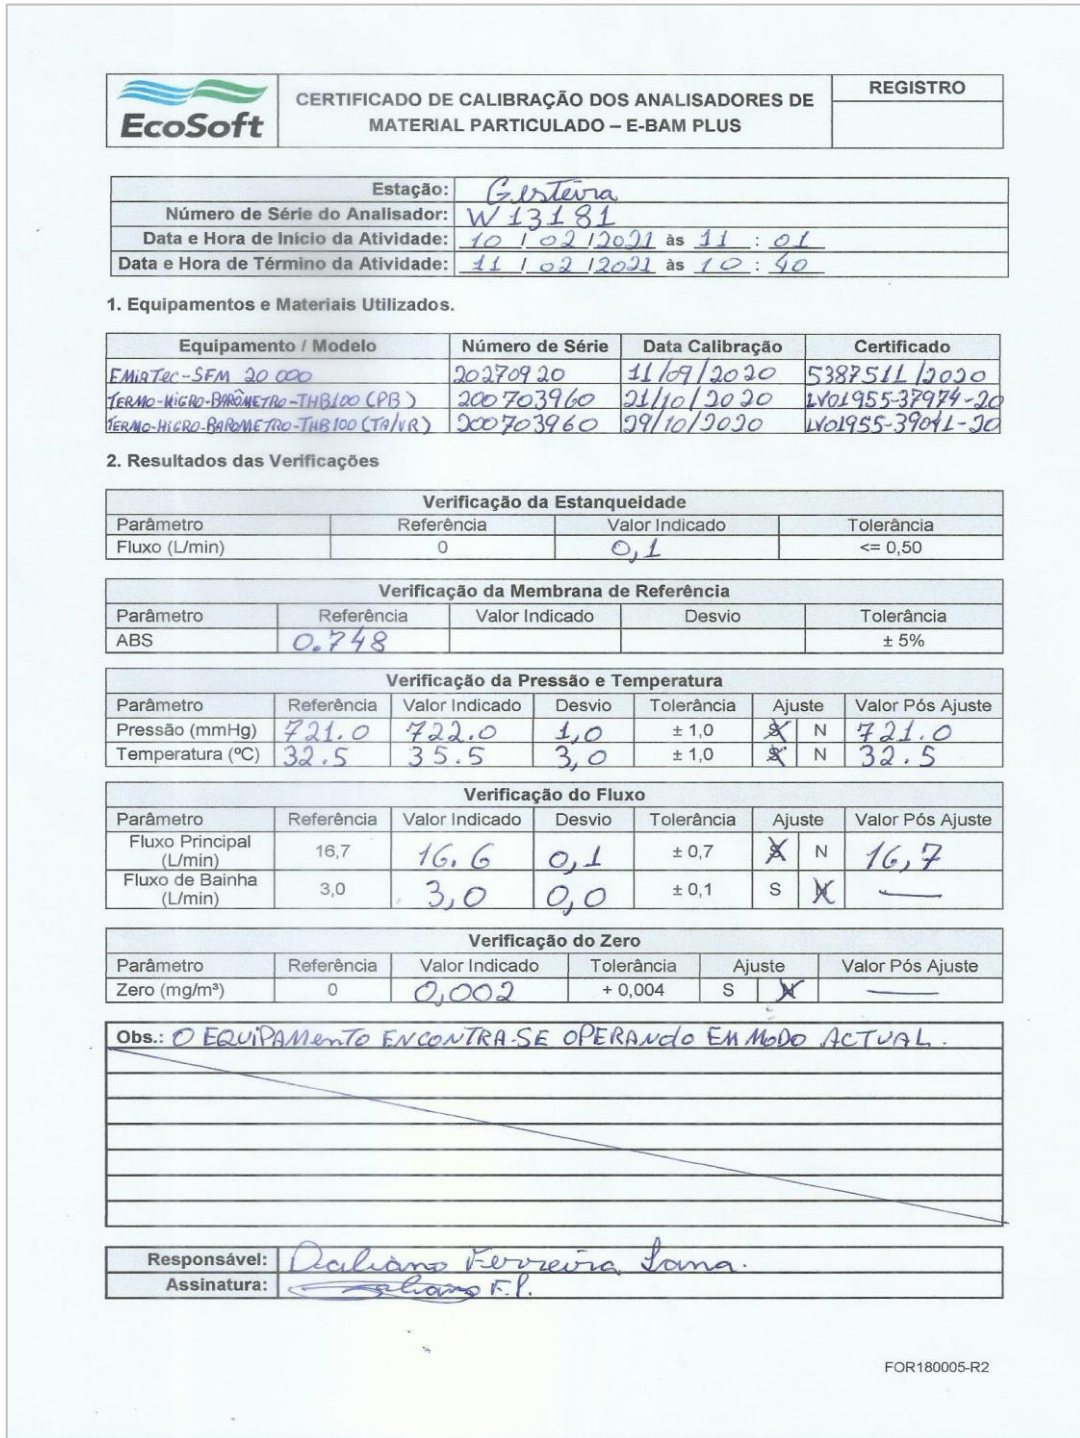 EcoSoft
CERTIFICADO DE CALIBRAÇÃO DOS ANALISADORES DE
MATERIAL PARTICULADO – E-BAM PLUS
REGISTRO
Estação: Gesteira
Número de Série do Analisador: W13181
Data e Hora de Início da Atividade: 10 / 02 / 2021 às 11 : 01
Data e Hora de Término da Atividade: 11 / 02 / 2021 às 10 : 40
1. Equipamentos e Materiais Utilizados.
Equipamento / Modelo Número de Série Data Calibração Certificado
EMiaTec-SFM 20 000 20270920 11/09/2020 5387511/2020
TERMO-HIGRO-BARÔMETRO-THB100 (PB) 200703960 21/10/2020 LV01955-37974-20
TERMO-HIGRO-BAROMETRO-THB100 (TA/UR) 200703960 29/10/2020 LV01955-39041-20
2. Resultados das Verificações
Verificação da Estanqueidade
Parâmetro Referência Valor Indicado Tolerância
Fluxo (L/min) 0 0,1 <= 0,50
Verificação da Membrana de Referência
Parâmetro Referência Valor Indicado Desvio Tolerância
ABS 0.748 ± 5%
Verificação da Pressão e Temperatura
Parâmetro Referência Valor Indicado Desvio Tolerância Ajuste Valor Pós Ajuste
Pressão (mmHg) 721.0 722.0 1,0 ± 1,0 S N 721.0
Temperatura (ºC) 32.5 35.5 3,0 ± 1,0 S N 32.5
Verificação do Fluxo
Parâmetro Referência Valor Indicado Desvio Tolerância Ajuste Valor Pós Ajuste
Fluxo Principal
(L/min) 16,7 16.6 0,1 ± 0,7 S N 16,7
Fluxo de Bainha
(L/min) 3,0 3,0 0,0 ± 0,1 S N —
Verificação do Zero
Parâmetro Referência Valor Indicado Tolerância Ajuste Valor Pós Ajuste
Zero (mg/m³) 0 0,002 + 0,004 S N —
Obs.: O EQUIPAMENTO ENCONTRA-SE OPERANDO EM MODO ACTUAL.
Responsável: Daliano Ferreira Lana.
Assinatura: F.P.
FOR180005-R2